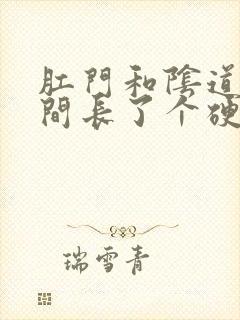 肛門和陰道
間長了个硬
瑞雪青